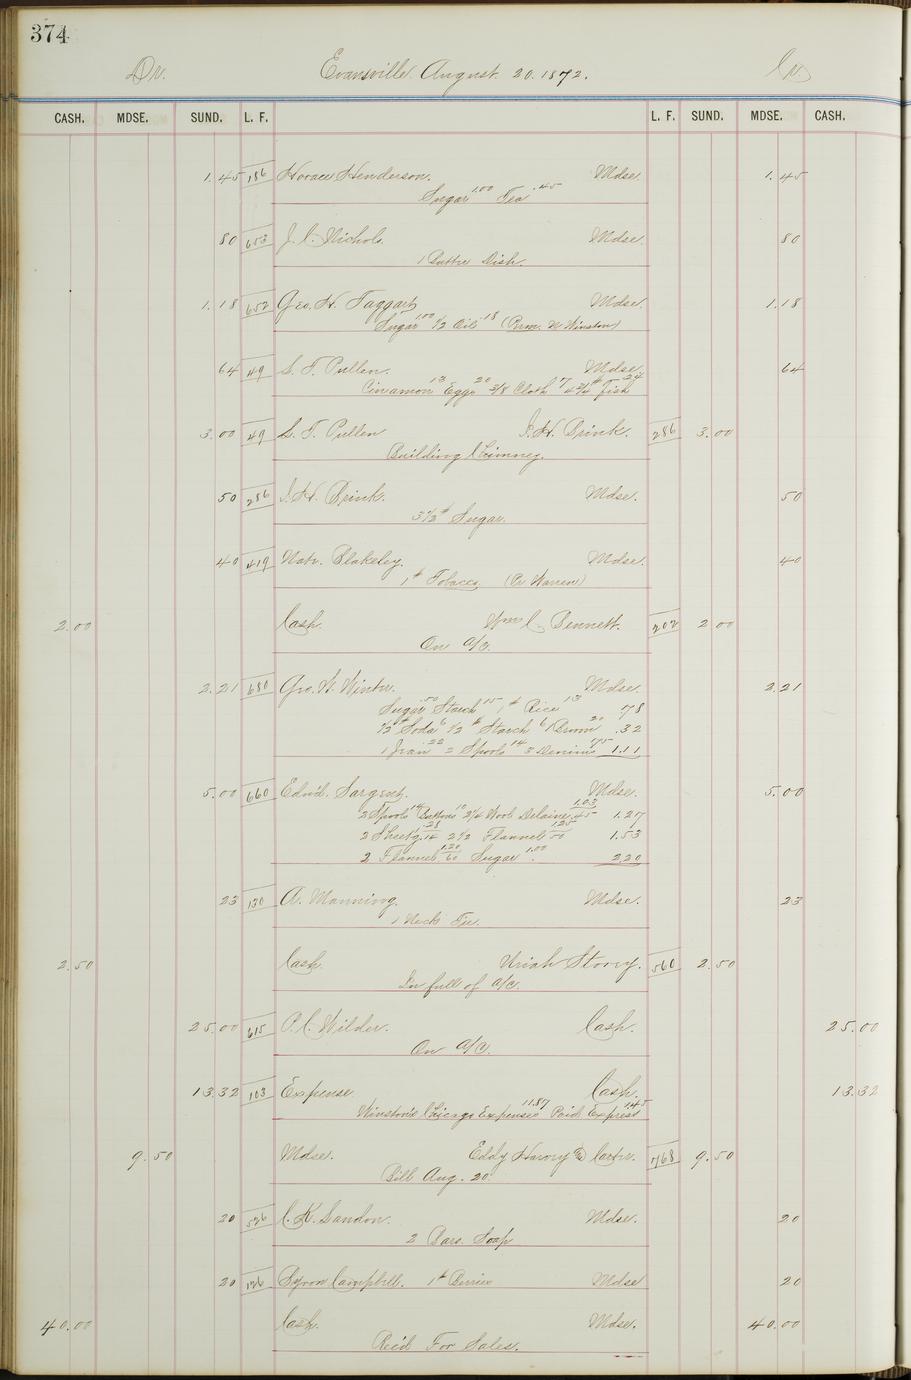 374
Dr. Evansville August. 20. 1872. Cr.
CASH. MDSE. SUND. L. F. L. F. SUND. MDSE. CASH.
1.45 186 Horace Henderson. Mdse. 1.45
Sugar 1.00 Tea .45
80 653 J. C. Nichols. Mdse. 80
1 Butter Dish.
1.18 652 Geo. H. Taggart Mdse. 1.18
Sugar 1.00 1/2 Oil .18 (Perm. W Winston)
64 49 S. T. Pullen. Mdse. 64
Cinnamon 13 Eggs 20 3/8 Cloth 7 4 3/4 # Fish 24
3.00 49 S. T. Pullen I. H. Brink. 286 3.00
Building Chimney.
50 286 I. H. Brink. Mdse. 50
3 1/2 # Sugar.
40 419 Natr. Blakeley. Mdse. 40
1 # Tobacco (Pr Warren)
2.00 Cash. Wm C. Bennett. 202 2 00
On a/c.
2.21 680 Geo. W. Winter. Mdse. 2.21
Sugar .50 Starch 15 1 # Rice 13 78
1/2 # Soda 6 1/2 # Starch 6 1 Broom 20 .32
1 Jean 22 2 Spools 14 3 Denims 75 1.11
5.00 660 Edw'd. Sargent. Mdse. 5.00
2 Spools 14 Buttons 10 2 1/4 Wool Delaine 1.03 45 1.27
2 Sheet'g. .28 14 2 1/2 Flannel 1.25 50 1.53
2 Flannel 1.20 60 Sugar 1.00 2.20
23 130 A. Manning. Mdse. 23
1 Neck Tie.
2.50 Cash. Uriah Story. 560 2.50
In full of a/c.
25.00 615 P. C. Wilder. Cash. 25.00
On a/c.
13.32 103 Expense. Cash. 13.32
Winston's Chicago Expenses 11.87 Paid Express 1.45
9.50 Mdse. Eddy Harvey & Carter. 768 9.50
Bill Aug. 20.
20 526 C. K. Landon. Mdse. 20
2 Bars. Soap
20 126 Byron Campbell. 1 # Berries Mdse 20
40.00 Cash. Mdse. 40.00
Rec'd For Sales.